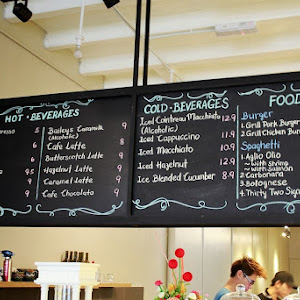 HOT · BEVERAGES
5
6
9.5
9
Baileys Caramilk 9
(Alcoholic)
Cafe Latte 8
Butterscotch Latte 9
Hazelnut Latte 9
Caramel Latte 9
Cafe Chocolata 9
COLD · BEVERAGES
Iced Cointreau Macchiato 12.9
(Alcoholic)
Iced Cappuccino 11.9
Iced Macchiato 10.9
Iced Hazelnut 12.9
Ice Blended Cucumber 8.9
FOOD
Burger
1. Grill Pork Burger
2. Grill Chicken Bur
Spaghetti
1. Aglio Olio
~ with Shrimp
~ with Salmon
2. Carbonara
3. Bolognese
4. Thirty Two Sig